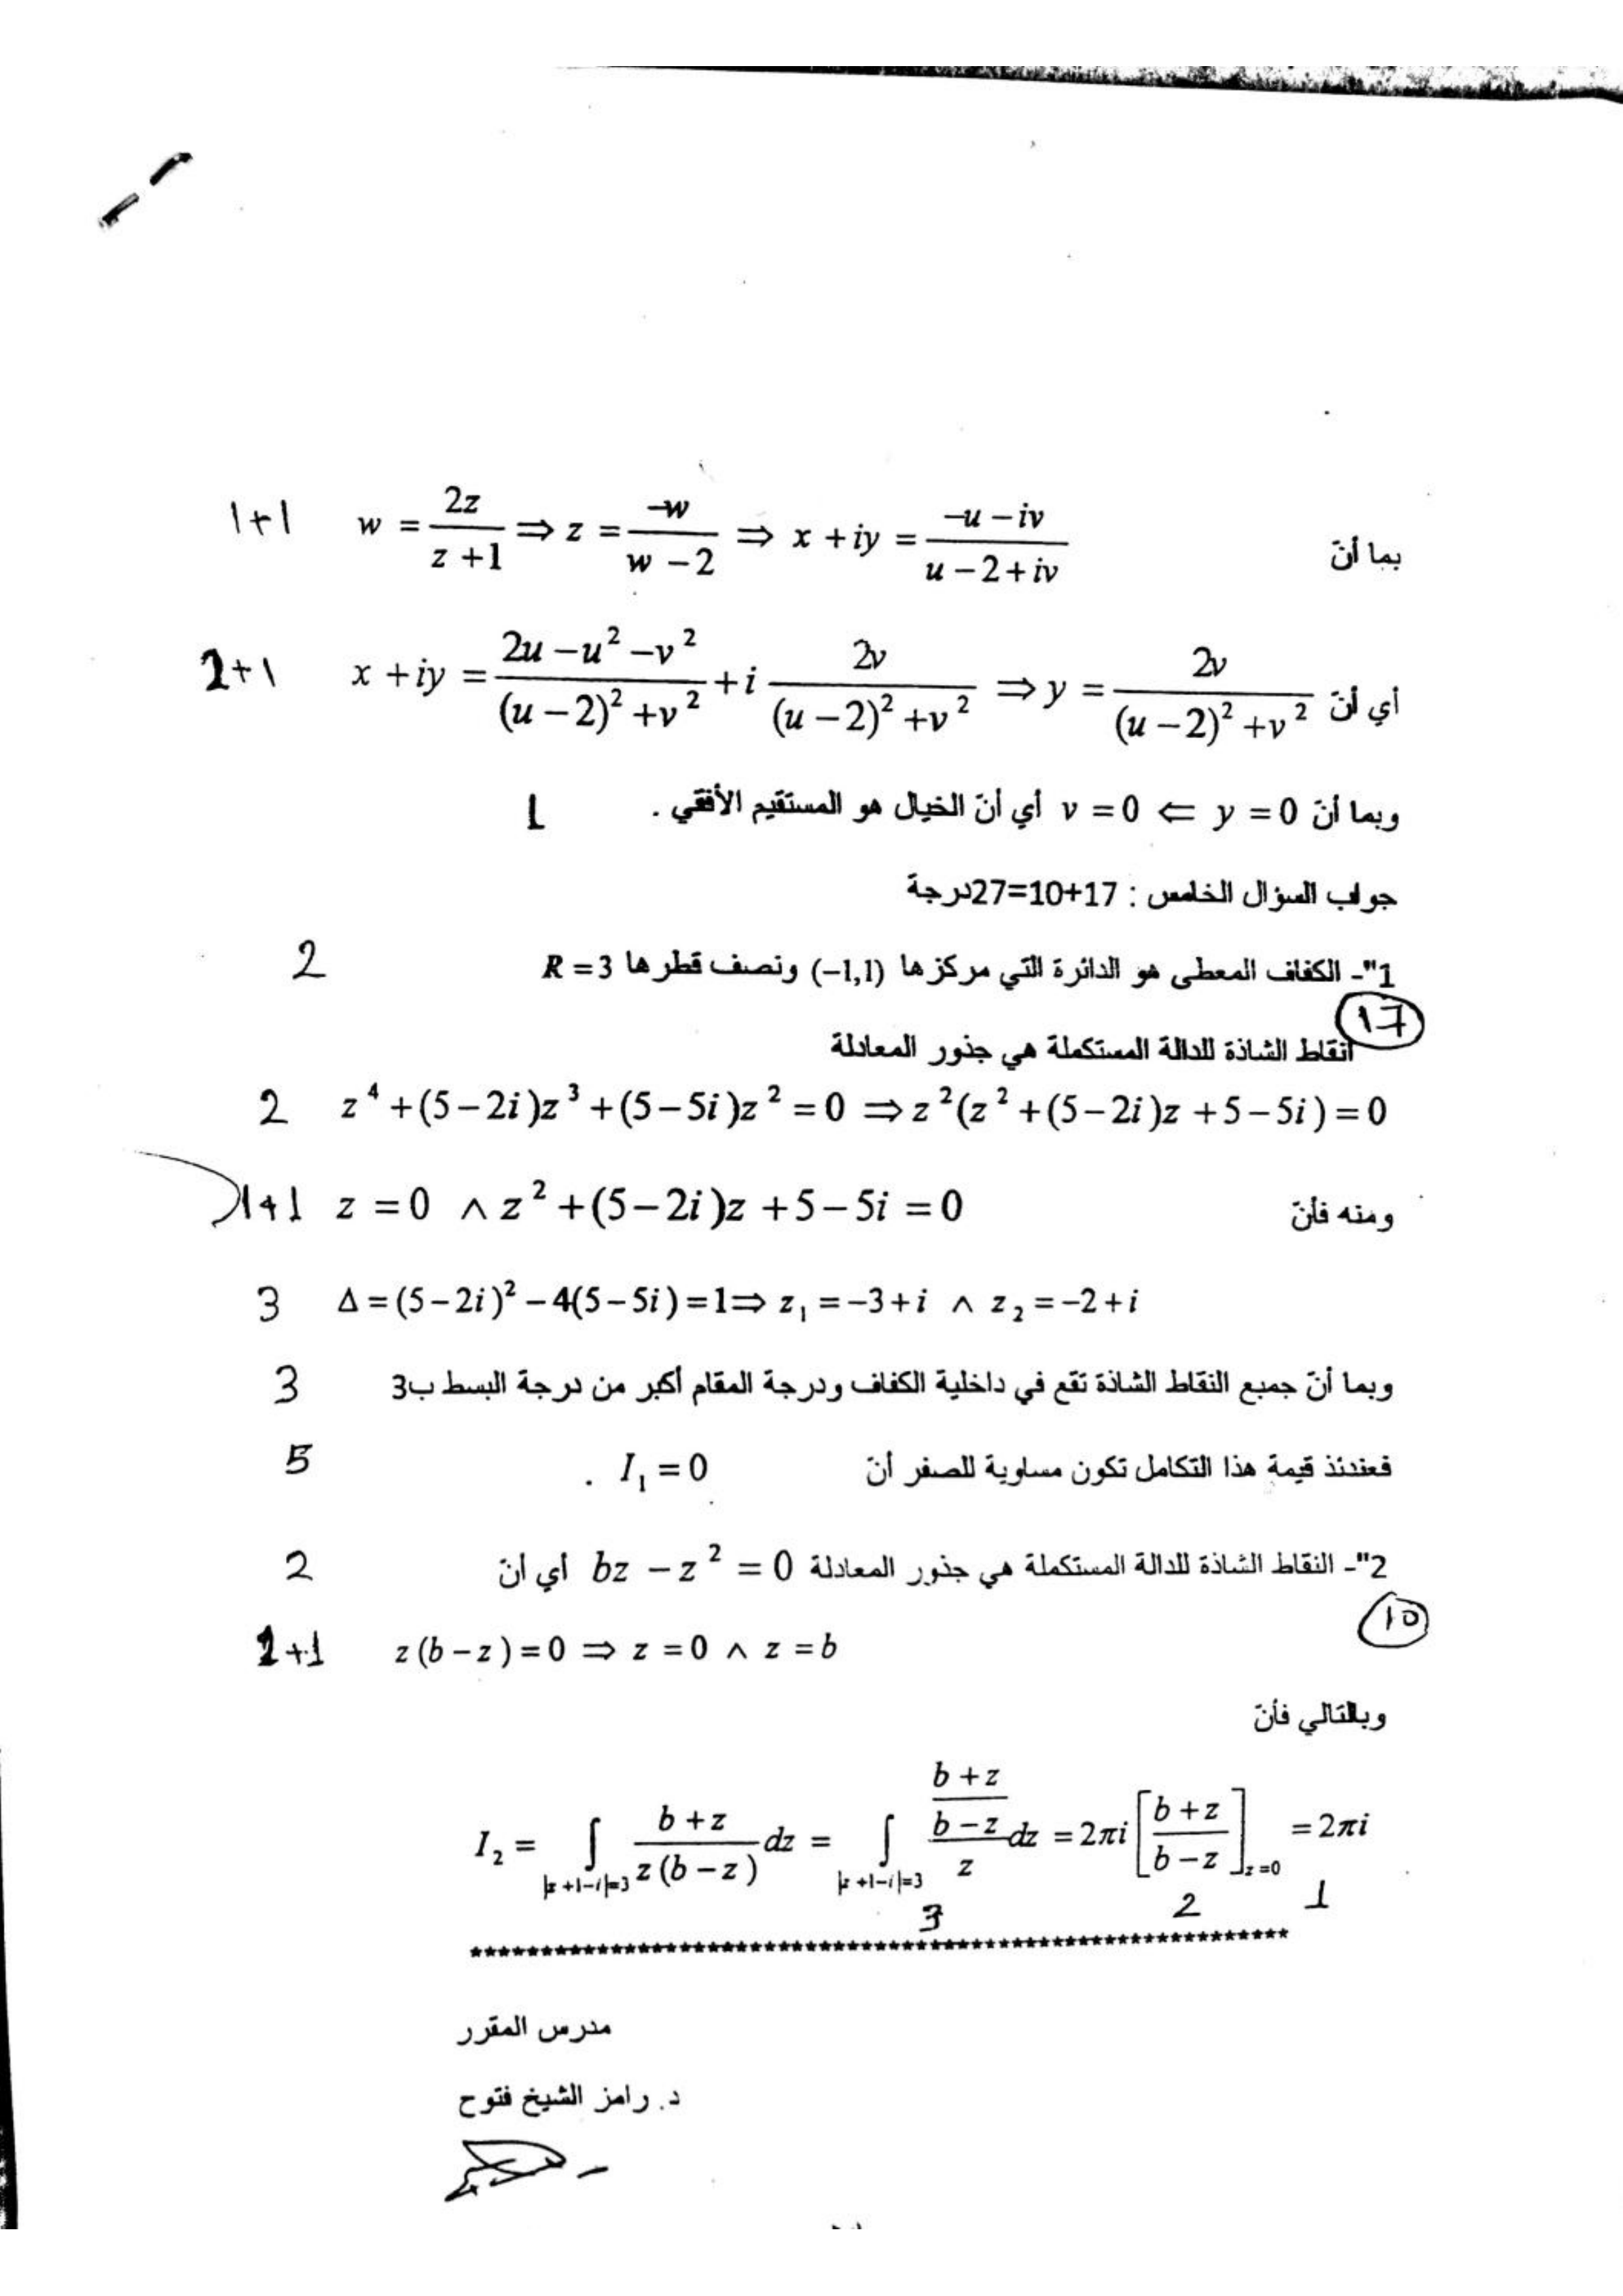 بما أنّ w = \frac{2z}{z+1} ⇒ z = \frac{-w}{w-2} ⇒ x + iy = \frac{-u-iv}{u-2+iv} 1+1
أي أنّ x + iy = \frac{2u-u^2-v^2}{(u-2)^2+v^2} + i \frac{2v}{(u-2)^2+v^2} ⇒ y = \frac{2v}{(u-2)^2+v^2} 2+1
وبما أنّ y = 0 ⇒ v = 0 أي أنّ الخيال هو المستقيم الأفقي . 1
جواب السؤال الخامس : 17+10=27درجة
1"- الكفاف المعطى هو الدائرة التي مركزها (-1,1) ونصف قطرها R = 3 2
17
انقاط الشاذة للدالة المستكملة هي جذور المعادلة
z^4 + (5-2i)z^3 + (5-5i)z^2 = 0 ⇒ z^2(z^2 + (5-2i)z + 5-5i) = 0 2
ومنه فأنّ z = 0 ∧ z^2 + (5-2i)z + 5-5i = 0 1+1
Δ = (5-2i)^2 - 4(5-5i) = 1 ⇒ z_1 = -3+i ∧ z_2 = -2+i 3
وبما أنّ جميع النقاط الشاذة تقع في داخلية الكفاف ودرجة المقام أكبر من درجة البسط ب3 3
فعندئذ قيمة هذا التكامل تكون مساوية للصفر أنّ I_1 = 0 . 5
2"- النقاط الشاذة للدالة المستكملة هي جذور المعادلة bz - z^2 = 0 أي انّ 2
10
z(b-z) = 0 ⇒ z = 0 ∧ z = b 1+1
وبالتالي فأنّ
I_2 = \int_{|z+1-i|=3} \frac{b+z}{z(b-z)} dz = \int_{|z+1-i|=3} \frac{\frac{b+z}{b-z}}{z} dz = 2πi [\frac{b+z}{b-z}]_{z=0} = 2πi
3 2 1
**********************************************************
مدرس المقرر
د. رامز الشيخ فتوح